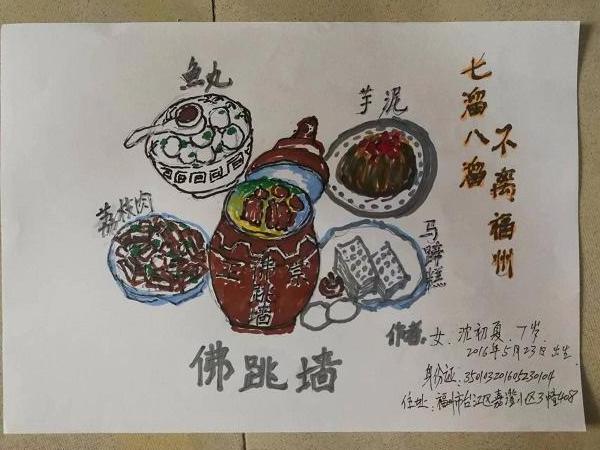 七溜八溜
不离福州
鱼丸
芋泥
荔枝肉
马蹄糕
佛跳墙
佛跳墙
作者: 女、沈初夏、7岁
2016年5月23日出生
身份证:350103201605230104
住址:福州市台江区嘉澄小区3幢408